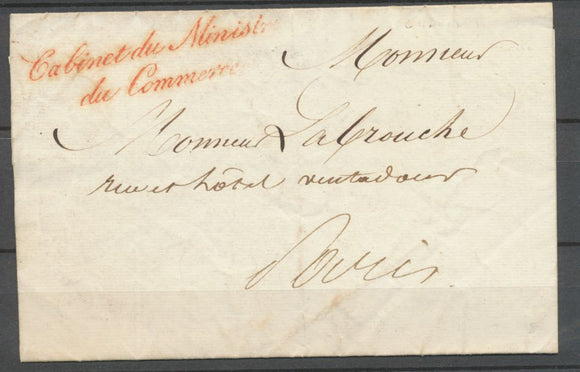 Cabinet du Minist
du Commerce
Monsieur
Monsieur Labrouche
rue et hôtel ventadour
Paris